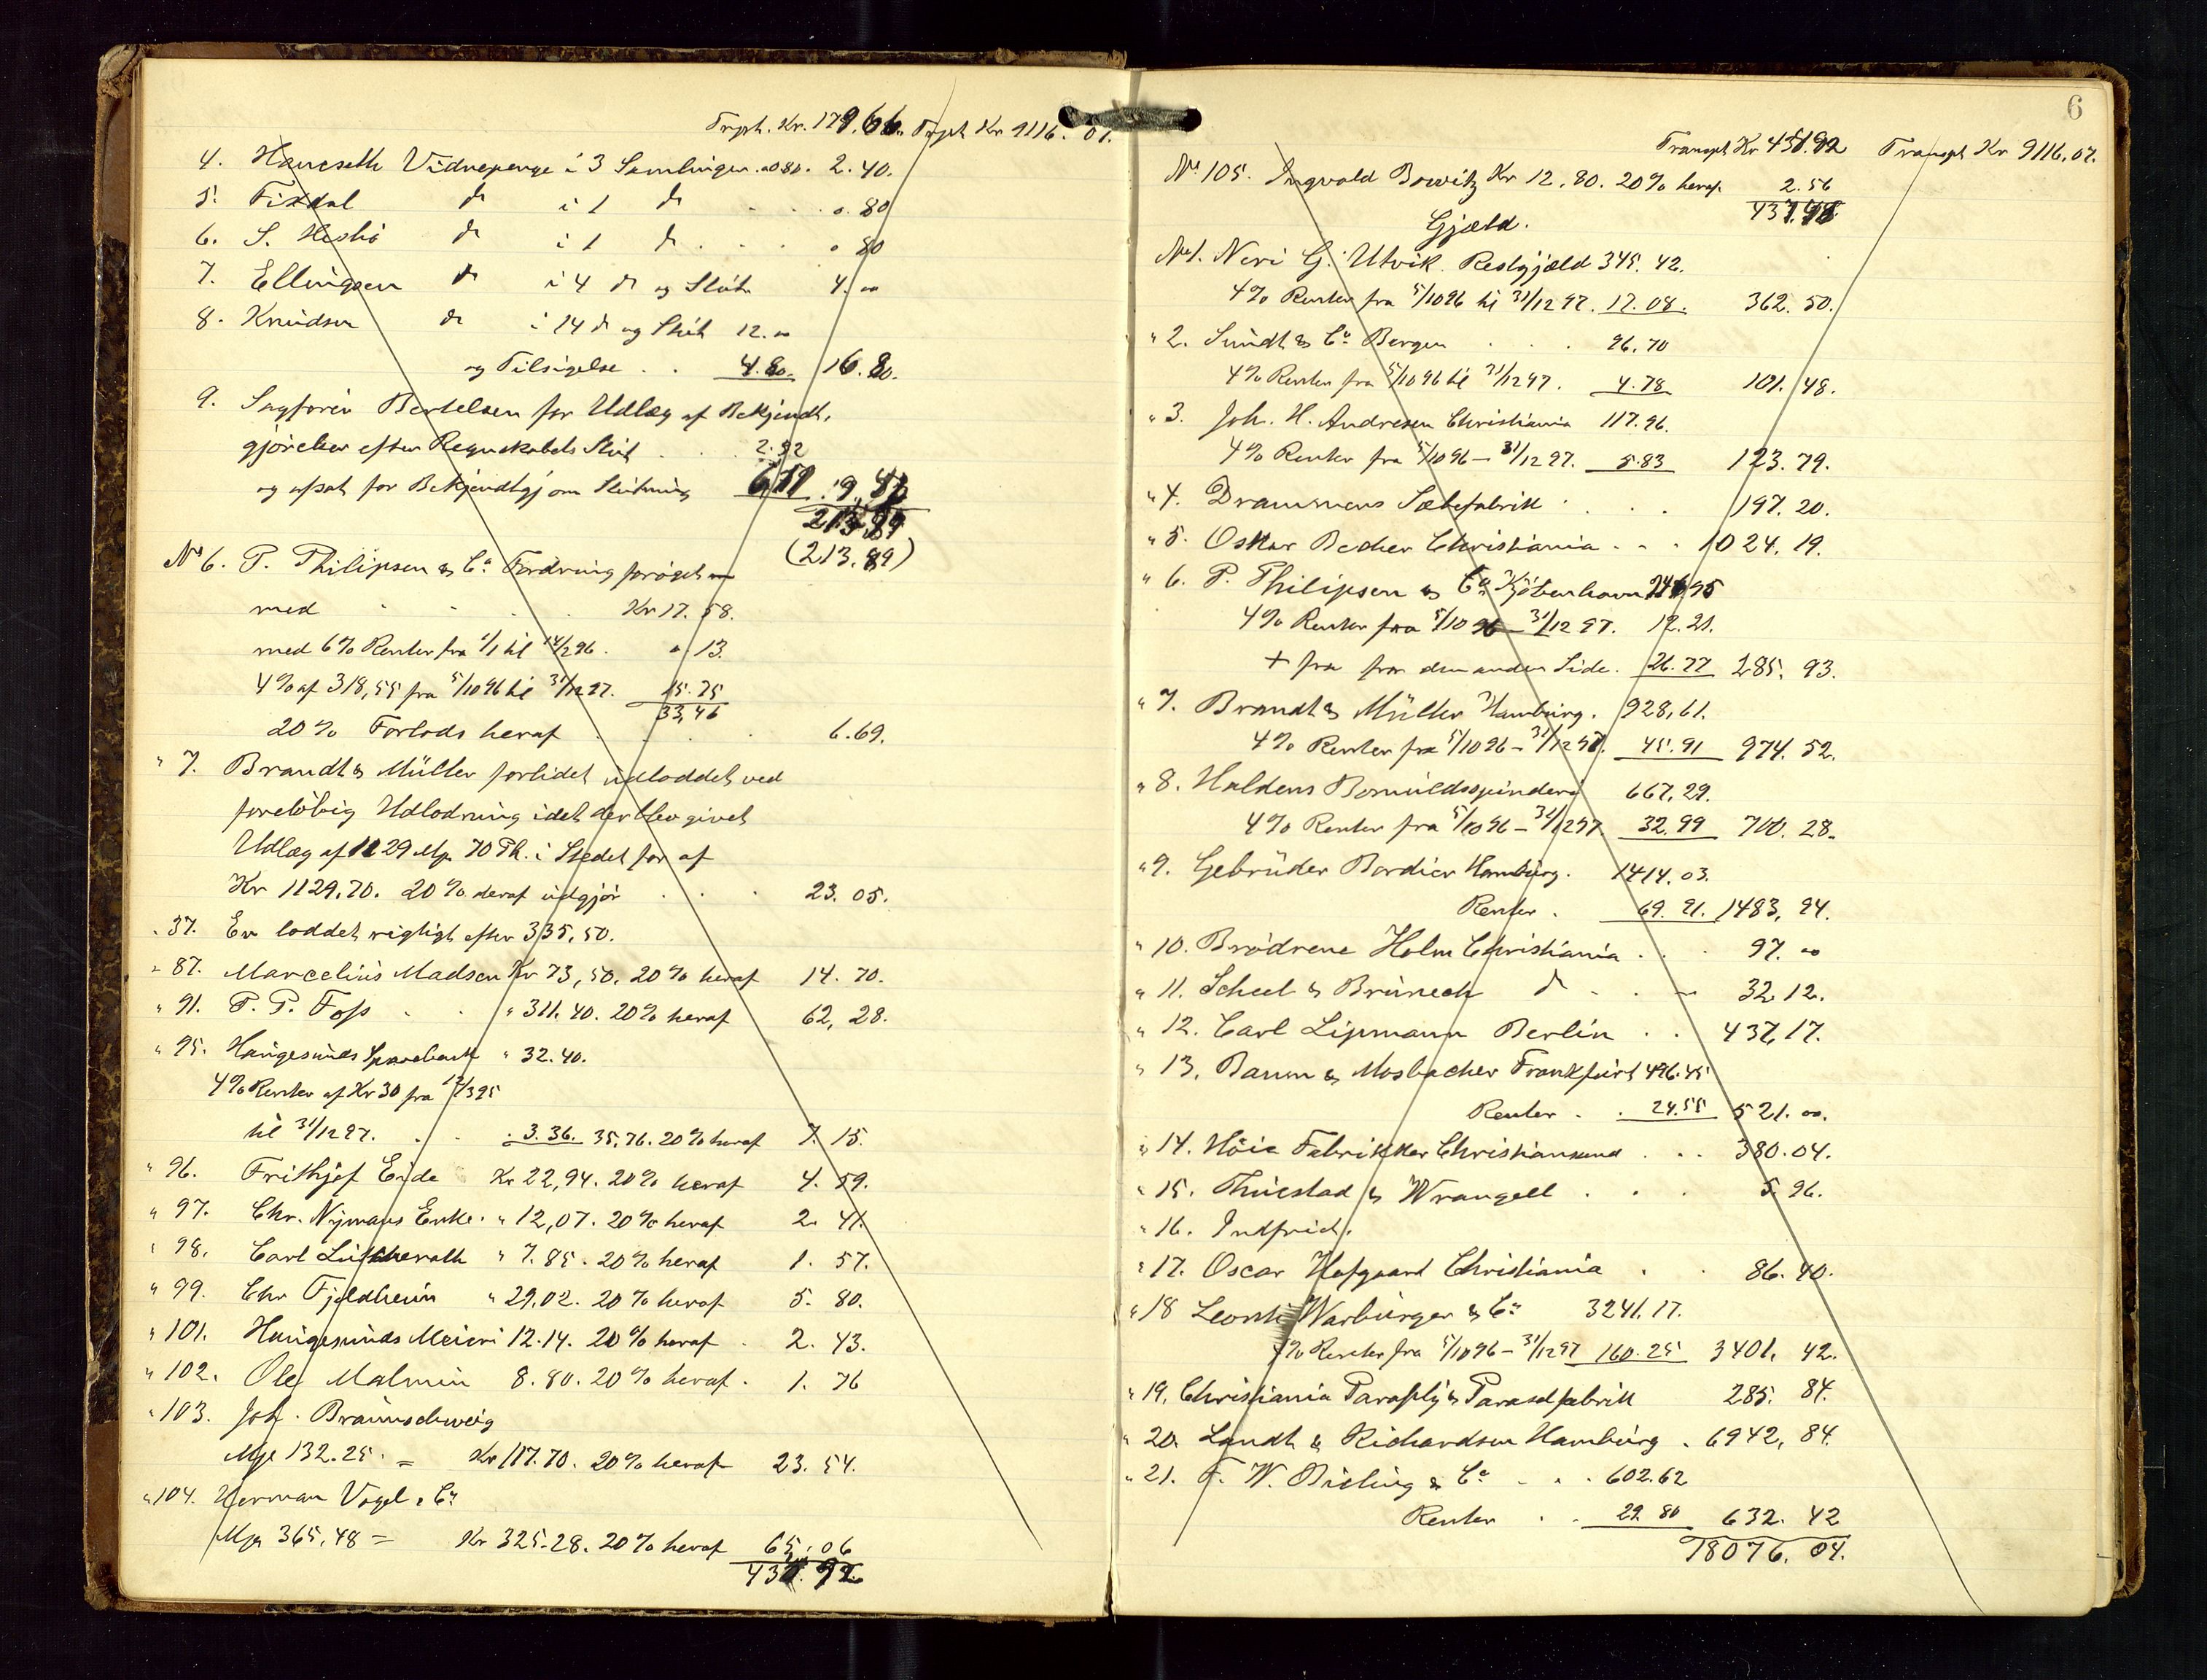 Trpt. Kr. 179.66. Trpt Kr 9116. 07.
4. Haucseth Vidnepenge i 3 Samlinger a 0 80. 2. 40.
5. Fixdal do i 1 do . . 0. 80
6. S. do i 1 do . . . 0 80
7. Ellingsen do i 4 do og Slut 4. 00
8. Knudsen do i 14 do og Slut 12. 00
og Tilsigelse . . 4.80. 16. 80.
9. Sagfører Bertelsen for Udlæg af Bekjendt,
gjørelser efter Regnskabets Slut . . . 2.92
og afsat for Bekjendtgj om Slutning
213,89
(213, 89)
No 6. P. Philipsen & Co Fordring forøget
med . . . . Kr 17. 58.
med 6% Renter fra 1/1 til 14/2 96. " 13.
4% af 318,55 fra 5/10 96 til 31/12 97. 15. 75
33,46
20% Forlods heraf . . . 6. 69.
" 7. Brandt & Müller forlidet udloddet ved
foreløbig Udlodning idet der blev givet
Udlæg af 1129 Mk 70 Pf. i Stedet for af
Kr 1129.70. 20% deraf udgjør . . . 23. 05.
" 37. Er loddet rigtigt efter 335,50.
" 87. Marcelius Madsen Kr 73,50. 20% heraf 14. 70.
" 91. P. P. Foss . . " 311.40. 20% heraf 62, 28.
" 95. Haugesunds Sparebank " 32.40.
4% Renter af Kr 30 fra 12/3 95
til 31/12 97. . . . 3.36. 35,76. 20% heraf 7. 15.
" 96. Frithjof Eide Kr 22,94. 20% heraf 4. 59.
" 97. Chr. Nymans Enke. " 12,07. 20% heraf 2. 41.
" 98. Carl " 7.85. 20% heraf 1. 57.
" 99. Chr Fjeldheim " 29,02. 20% heraf 5. 80.
" 101. Haugesunds Meieri 12.14. 20% heraf . 2. 43.
" 102. Ole Malmin 8.80. 20% heraf . 1. 76
" 103. Joh. Braunschweig
Mk 132.25. = Kr 117.70. 20% heraf 23. 54.
" 104. Herman Vogel & Co
Mk 365,48 = Kr 325.28. 20% heraf 65. 06
6
Transpt Kr Transpt Kr 9116,07.
No 105. Ingvald Bowitz Kr 12,80. 20% heraf. 2. 56
Gjæld.
No 1. Neri G. Utvik. Restgjæld 345. 42.
4% Renter fra 5/10 96 til 31/12 97. 17.08. 362. 50.
" 2. Sundt & Co Bergen . . . 96.70
4% Renter fra 5/10 96 til 31/12 97. 4.78 101. 48.
" 3. Joh. H. Andresen Christiania 117.96.
4% Renter fra 5/10 96 - 31/12 97. 5.83 123. 79.
" 4. Drammens Sæbefabrik . . . . 197. 20.
" 5. Oskar Becher Christiania . . . 1024. 19.
" 6. P. Philipsen & Co Kjöbenhavn 246,95
4% Renter fra 5/10 96 - 31/12 97. 12.21.
+ fra for den anden Side. 26.77 285. 93.
" 7. Brandt & Müller Hamburg. 928,61.
4% Renter fra 5/10 96 - 31/12 97. 45.91 974. 52.
" 8. Haldens Bomuldsspinderi 667,29.
4% Renter fra 5/10 96 - 31/12 97 32.99 700. 28.
" 9. Gebrüder Bordier Hamburg. 1414.03.
Renter . 69. 91. 1483, 94.
" 10. Brødrene Holm Christiania . . . 97. 00
" 11. Scheel & Brünech do . . . 32. 12.
" 12. Carl Lipmann Berlin . . 437, 17.
" 13. Baum & Mosbacher Frankfurt 496.45
Renter . . 24.55 521. 00.
" 14. Höie Fabrikker Christiansand . . . 380.04.
" 15. Thiestad & Wrangell . . . 5. 96.
" 16. Indfriet.
" 17. Oscar Hofgaard Christiania . . 86. 40.
" 18 Leonti Warburger & Co 3241.17.
4% Renter fra 5/10 96 - 31/12 97 160.25 3401. 42.
" 19. Christiania Paraply & Parasolfabrik 285. 84.
" 20. Landt & Richardsen Hamburg . 6942, 84.
" 21. F. W. Bieling & Co . . . 602.62
Renter . . 29. 80 632. 42
18076. 04.